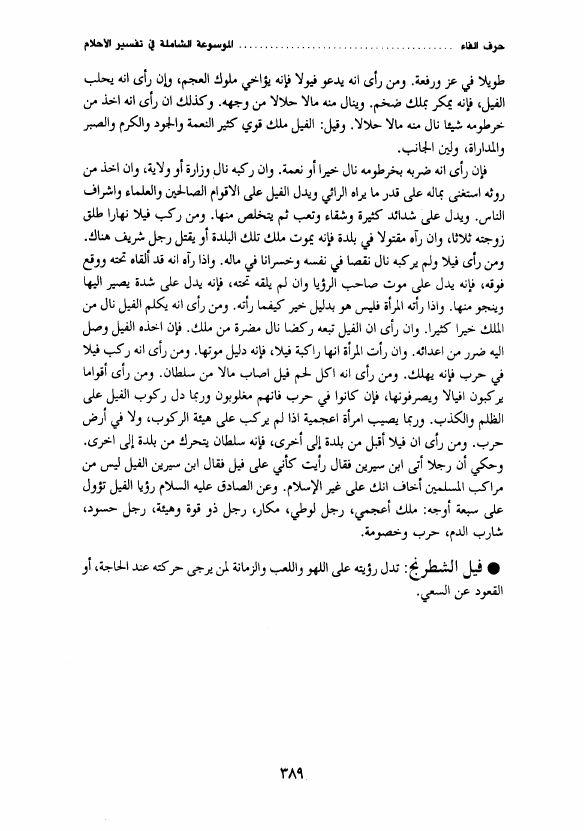 حرف الفاء ........................................ الموسوعة الشاملة في تفسير الأحلام
طويلا في عز ورفعة. ومن رأى انه يدعو فيولا فإنه يؤاخي ملوك العجم، وإن رأى انه يحلب
الفيل، فإنه يمكر بملك ضخم. وينال منه مالا حلالا من وجهه. وكذلك ان رأى انه اخذ من
خرطومه شيئا نال منه مالا حلالا. وقيل: الفيل ملك قوي كثير النعمة والجود والكرم والصبر
والمداراة، ولين الجانب.
فإن رأى انه ضربه بخرطومه نال خيرا أو نعمة. وان ركبه نال وزارة أو ولاية، وان اخذ من
روثه استغنى بماله على قدر ما يراه الرائي ويدل الفيل على الاقوام الصالحين والعلماء واشراف
الناس. ويدل على شدائد كثيرة وشقاء وتعب ثم يتخلص منها. ومن ركب فيلا نهارا طلق
زوجته ثلاثا، وان رآه مقتولا في بلدة فإنه يموت ملك تلك البلدة أو يقتل رجل شريف هناك.
ومن رأى فيلا ولم يركبه نال نقصا في نفسه وخسرانا في ماله. واذا رآه انه قد ألقاه تحته ووقع
فوقه، فإنه يدل على موت صاحب الرؤيا وان لم يلقه تحته، فإنه يدل على شدة يصير اليها
وينجو منها. واذا رأته المرأة فليس هو بدليل خير كيفما رأته. ومن رأى انه يكلم الفيل نال من
الملك خيرا كثيرا. وان رأى ان الفيل تبعه ركضا نال مضرة من ملك. فإن اخذه الفيل وصل
اليه ضرر من اعدائه. وان رأت المرأة انها راكبة فيلا، فإنه دليل موتها. ومن رأى انه ركب فيلا
في حرب فإنه يهلك. ومن رأى انه اكل لحم فيل اصاب مالا من سلطان. ومن رأى أقواما
يركبون افيالا ويصرفونها، فإن كانوا في حرب فانهم مغلوبون وربما دل ركوب الفيل على
الظلم والكذب. وربما يصيب امرأة اعجمية اذا لم يركب على هيئة الركوب، ولا في أرض
حرب. ومن رأى ان فيلا أقبل من بلدة إلى أخرى، فإنه سلطان يتحرك من بلدة إلى اخرى.
وحكي أن رجلا أتى ابن سيرين فقال رأيت كأني على فيل فقال ابن سيرين الفيل ليس من
مراكب المسلمين أخاف انك على غير الإسلام. وعن الصادق عليه السلام رؤيا الفيل تؤول
على سبعة أوجه: ملك أعجمي، رجل لوطي، مكار، رجل ذو قوة وهيئة، رجل حسود،
شارب الدم، حرب وخصومة.
● فيل الشطرنج: تدل رؤيته على اللهو واللعب والزمانة لمن يرجى حركته عند الحاجة، أو
القعود عن السعي.
٣٨٩